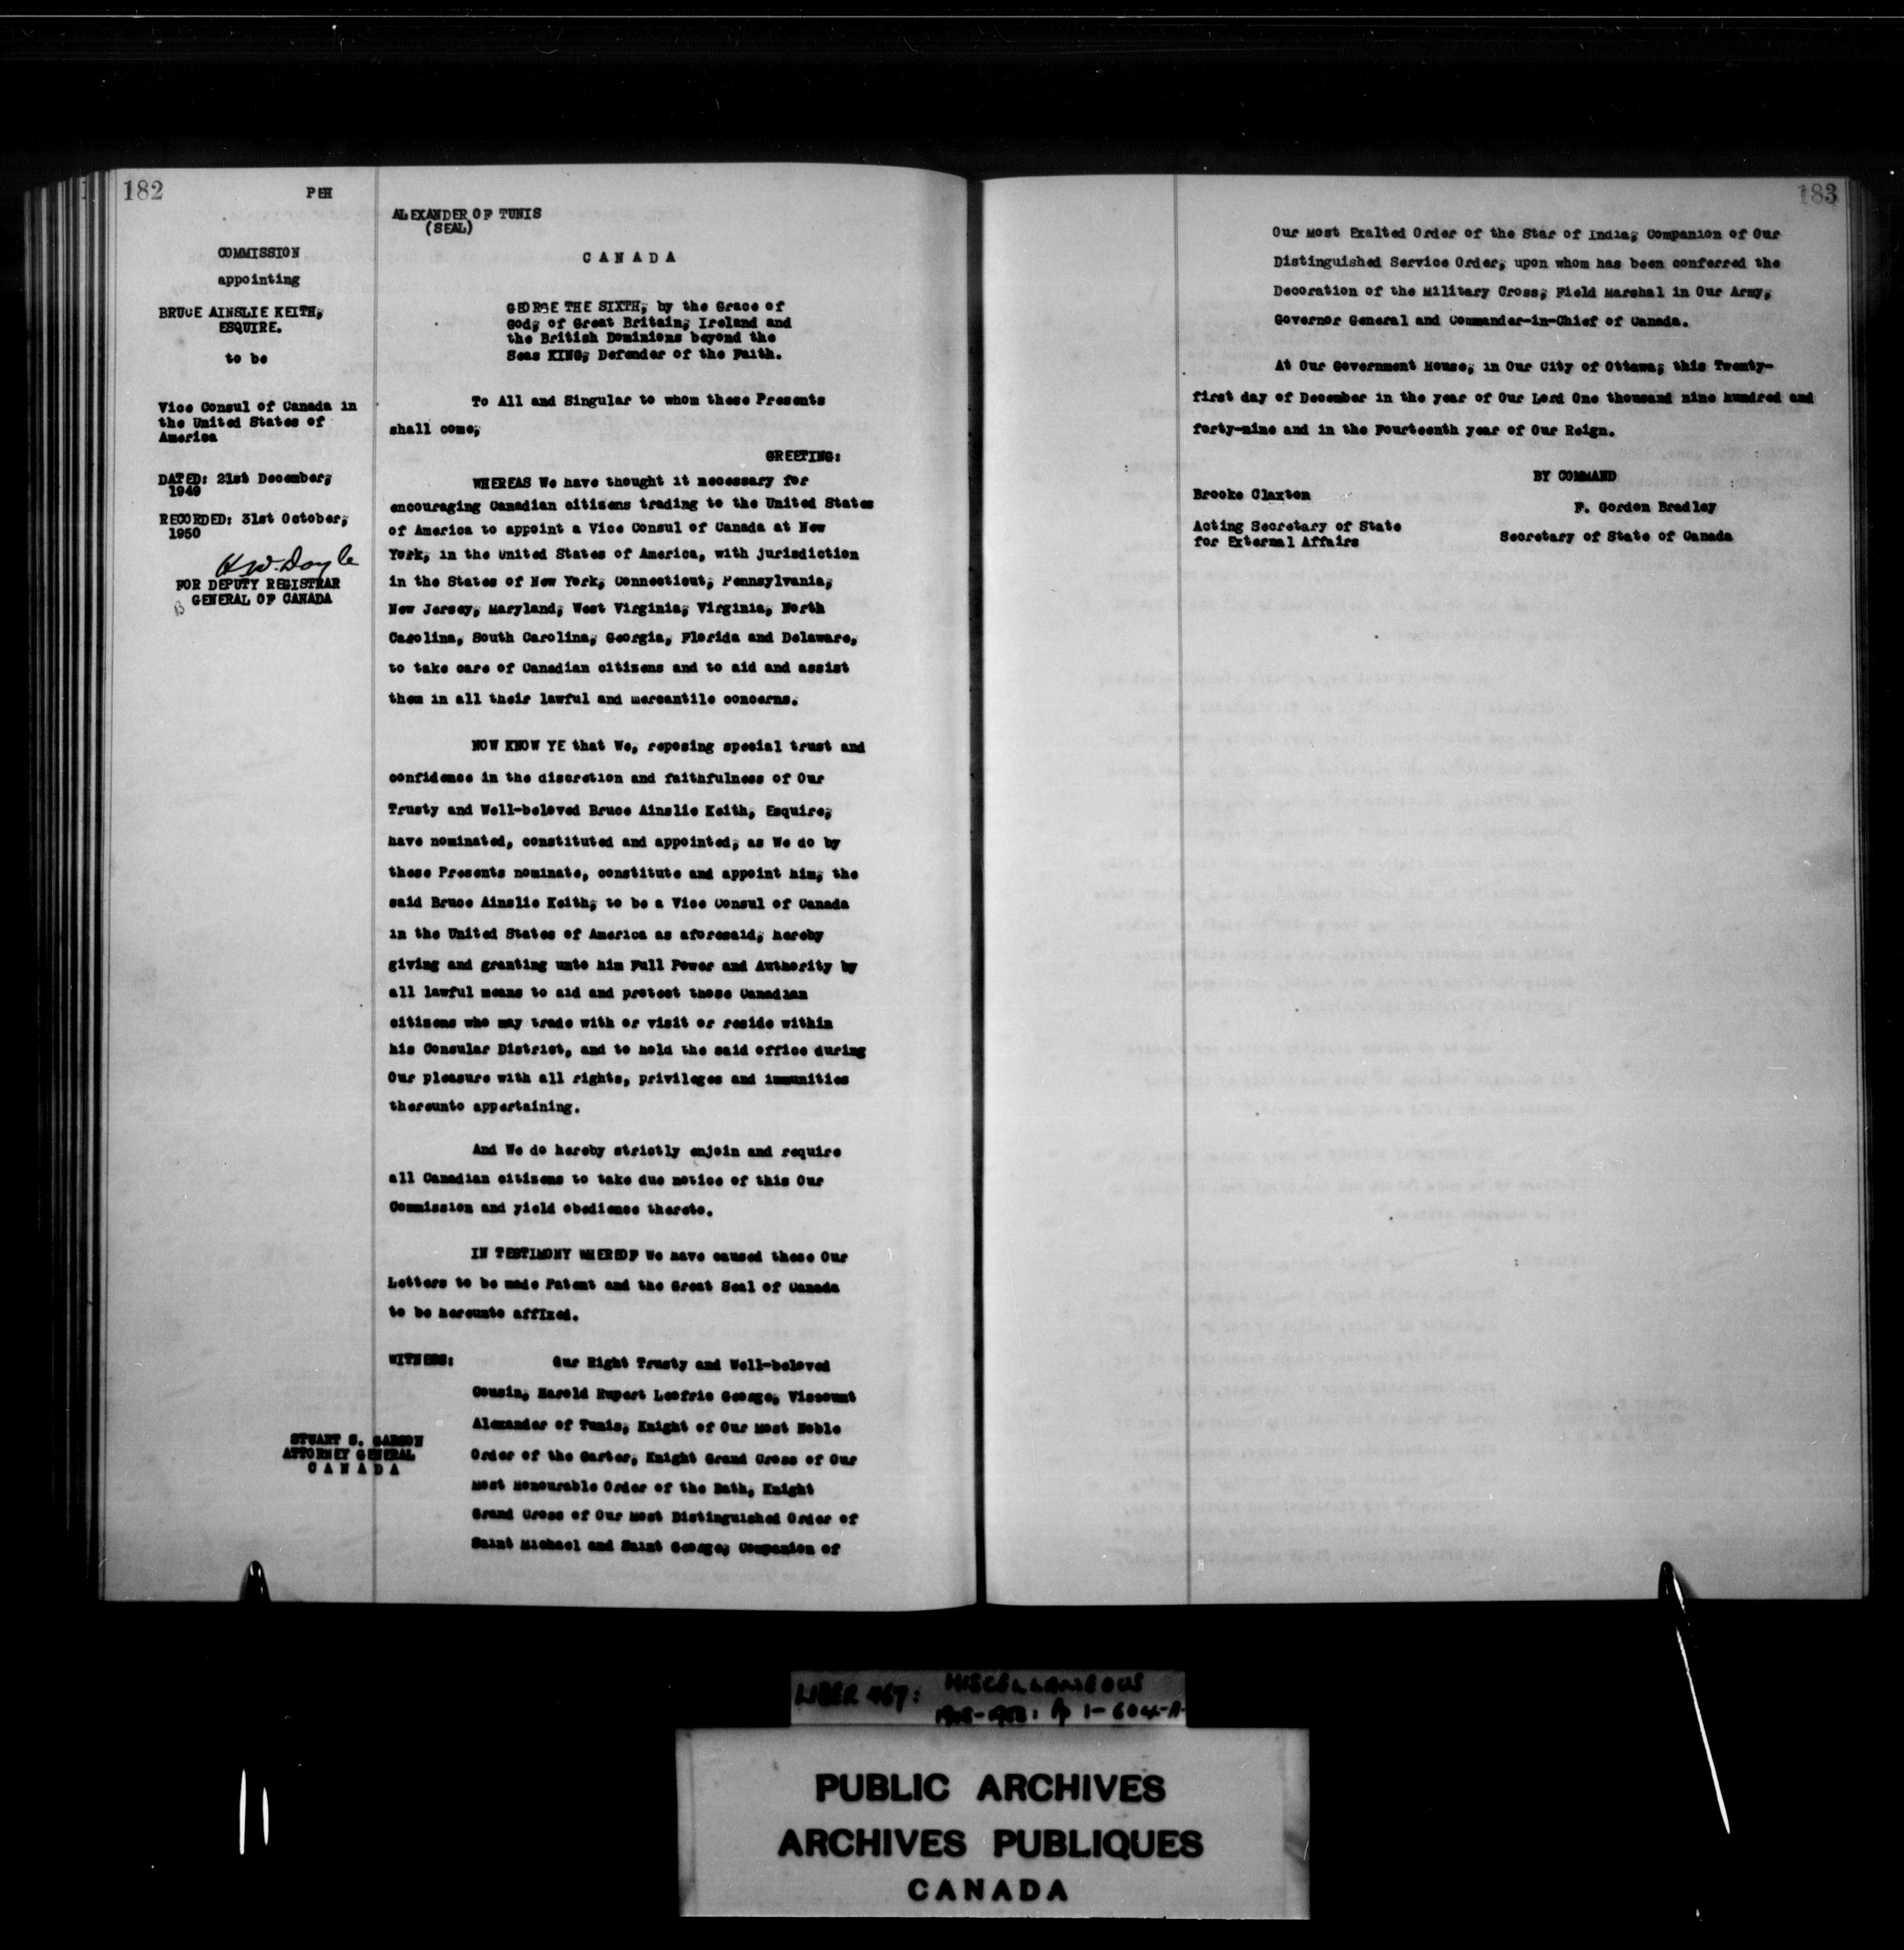 182
PEH
COMMISSION
appointing
BRUCE AINSLIE KEITH,
ESQUIRE.
to be
Vice Consul of Canada in
the United States of
America
DATED: 21st December,
1949
RECORDED: 31st October,
1950
H.W. Doyle
FOR DEPUTY REGISTRAR
GENERAL OF CANADA
B
STUART S. GARSON
ATTORNEY GENERAL
C A N A D A
ALEXANDER OF TUNIS
(SEAL)
C A N A D A
GEORGE THE SIXTH, by the Grace of
God, of Great Britain, Ireland and
the British Dominions beyond the
Seas KING, Defender of the Faith.
To All and Singular to whom these Presents
shall come,
GREETING:
WHEREAS We have thought it necessary for
encouraging Canadian citizens trading to the United States
of America to appoint a Vice Consul of Canada at New
York, in the United States of America, with jurisdiction
in the States of New York, Connecticut, Pennsylvania,
New Jersey, Maryland, West Virginia, Virginia, North
Carolina, South Carolina, Georgia, Florida and Delaware,
to take care of Canadian citizens and to aid and assist
them in all their lawful and mercantile concerns.
NOW KNOW YE that We, reposing special trust and
confidence in the discretion and faithfulness of Our
Trusty and Well-beloved Bruce Ainslie Keith, Esquire,
have nominated, constituted and appointed, as We do by
these Presents nominate, constitute and appoint him, the
said Bruce Ainslie Keith, to be a Vice Consul of Canada
in the United States of America as aforesaid, hereby
giving and granting unto him Full Power and Authority by
all lawful means to aid and protect those Canadian
citizens who may trade with or visit or reside within
his Consular District, and to hold the said office during
Our pleasure with all rights, privileges and immunities
thereunto appertaining.
And We do hereby strictly enjoin and require
all Canadian citizens to take due notice of this Our
Commission and yield obedience thereto.
IN TESTIMONY WHEREOF We have caused these Our
Letters to be made Patent and the Great Seal of Canada
to be hereunto affixed.
WITNESS: Our Right Trusty and Well-beloved
Cousin, Harold Rupert Leofric George, Viscount
Alexander of Tunis, Knight of Our Most Noble
Order of the Garter, Knight Grand Cross of Our
Most Honourable Order of the Bath, Knight
Grand Cross of Our Most Distinguished Order of
Saint Michael and Saint George, Companion of
183
Our Most Exalted Order of the Star of India, Companion of Our
Distinguished Service Order, upon whom has been conferred the
Decoration of the Military Cross, Field Marshal in Our Army,
Governor General and Commander-in-Chief of Canada.
At Our Government House, in Our City of Ottawa, this Twenty-
first day of December in the year of Our Lord One thousand nine hundred and
forty-nine and in the Fourteenth year of Our Reign.
BY COMMAND
Brooke Claxton
F. Gordon Bradley
Acting Secretary of State
for External Affairs
Secretary of State of Canada
LIBER 467: MISCELLANEOUS
pp 1-604-A
PUBLIC ARCHIVES
ARCHIVES PUBLIQUES
CANADA